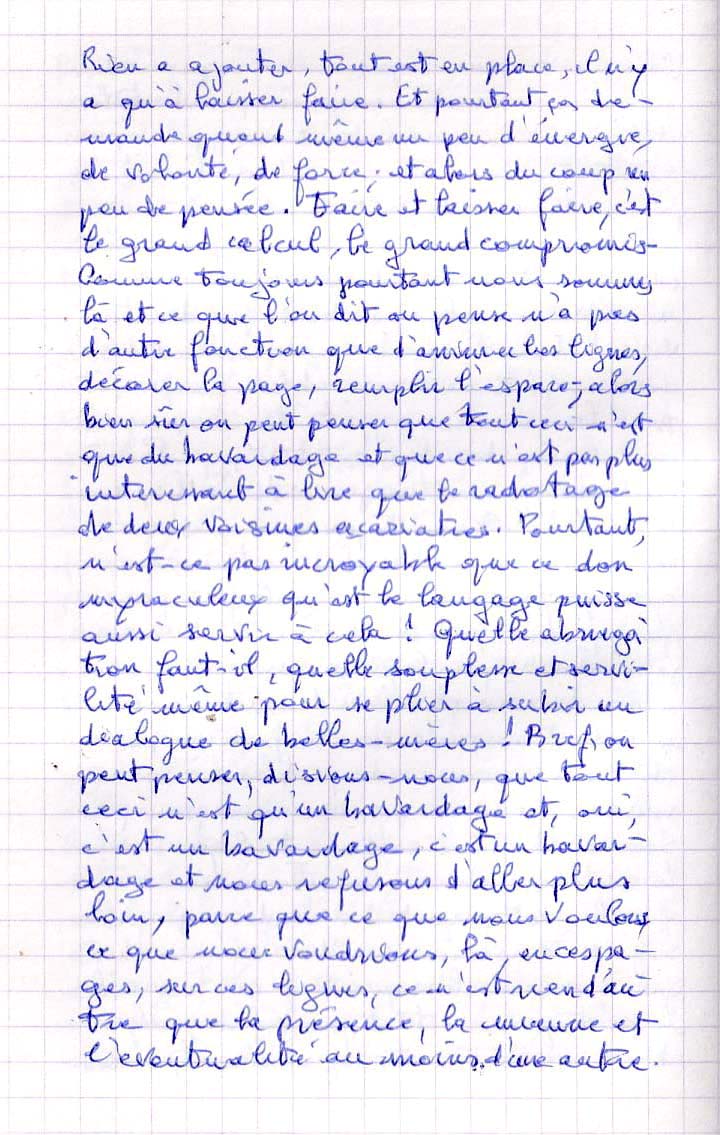 Rien a ajouter, tout est en place, il n'y
a qu'à laisser faire. Et pourtant ça de-
mande quant même un peu d'énergie,
de volonté, de force; et alors du coup un
peu de pensée. Faire et laisser faire, c'est
le grand calcul, le grand compromis-
Comme toujours pourtant nous sommes
là et ce que l'on dit ou pense n'a pas
d'autre fonction que d'animer les lignes,
décorer la page, remplir l'espace; alors
bien sûr on peut penser que tout ceci n'est
que du bavardage et que ce n'est pas plus
interessant à lire que le radotage
de deux voisines acariatres. Pourtant,
n'est-ce pas incroyable que ce don
myraculeux qu'est le langage puisse
aussi servir à cela! Quelle abnéga
tion faut-il, quelle souplesse et servi-
lité même pour se plier à subir un
dialogue de belles-mères! Bref, on
peut penser, disions-nous, que tout
ceci n'est qu'un bavardage et, oui,
c'est un bavardage, c'est un bavar-
dage et nous refusons d'aller plus
loin, parce que ce que nous voulons
ce que nous voudrions, là, en ces pa-
ges, sur ces lignes, ce n'est rien d'au
tre que la présence, la mienne et
l'éventualité au moins d'une autre.